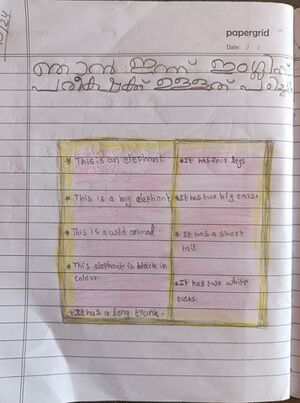 papergrid
Date: / /
ഞാൻ ഇന്ന് ഇംഗ്ലീഷ്
പരീക്ഷക്ക് ഉള്ളത്
* This is an elephant
* This is a big elephant
* This is a wild animal.
* This elephant is black in
colour.
* It has a long trunk.
* It has four legs
* It has two big ears.
* It has a short
tail
* It has two white
tusks.